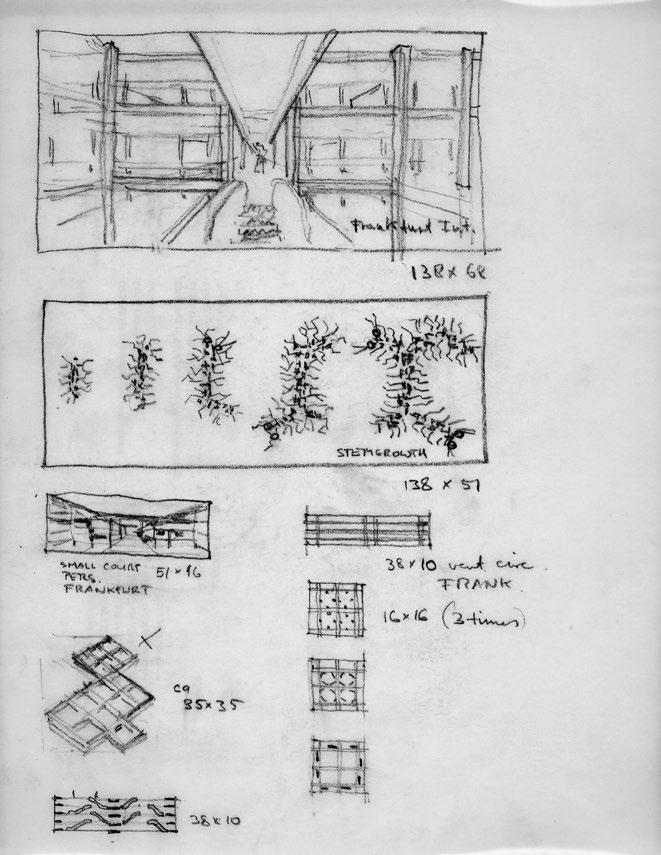 Frankfurt Int.
138 x 68
STEMGROWTH
138 x 51
SMALL COURT
PERS.
FRANKFURT
51 x 16
38 x 10 vert circ.
FRANK.
16 x 16 (3 times)
ca
35 x 35
38 x 10